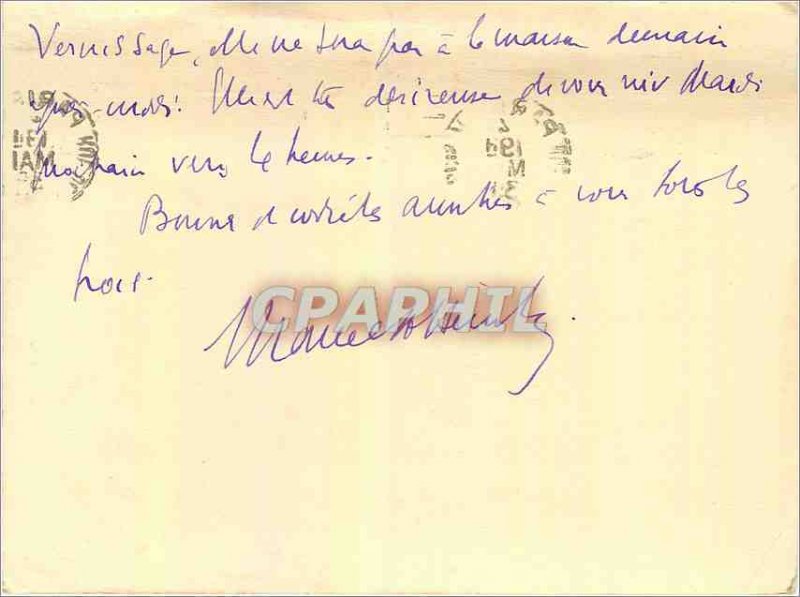 Vernissage, elle ne sera pas à la maison demain
après-midi. Elle est très désireuse de vous voir Mardi
prochain vers 4 heures.
Bonnes et cordiales amitiés à vous tous les
trois.
CPAPHIL